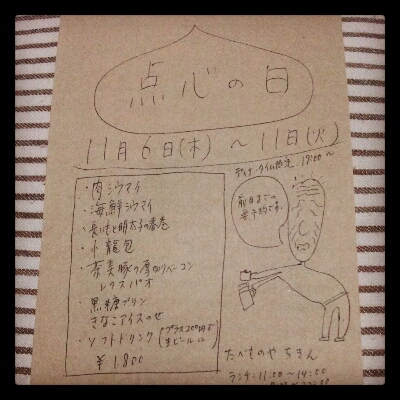 点心の日
11月6日(木) 〜 11日(火)
ディナータイム限定 17:00〜
・肉シウマイ
・海鮮シウマイ
・長いもと明太子の春巻
・小龍包
・茶美豚の厚切りベーコン
レタスパオ
・黒糖プリン
きなこアイスのせ
・ソフトドリンク (プラス200円で
生ビールに)
¥1800
前日までの
要予約です。
たべものや ちきん
ランチ: 11:00〜14:00